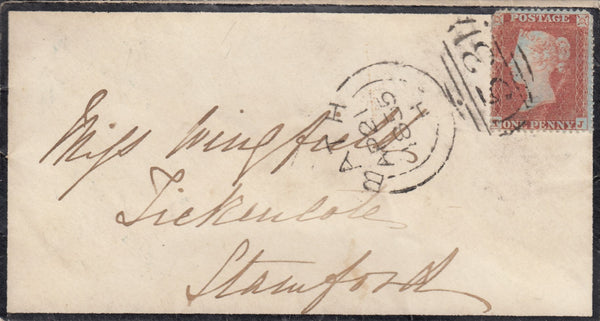 POSTAGE
ONE PENNY
J
53
BATH
AP 21
1855
H
Miss Wingfield
Tickencote
Stamford